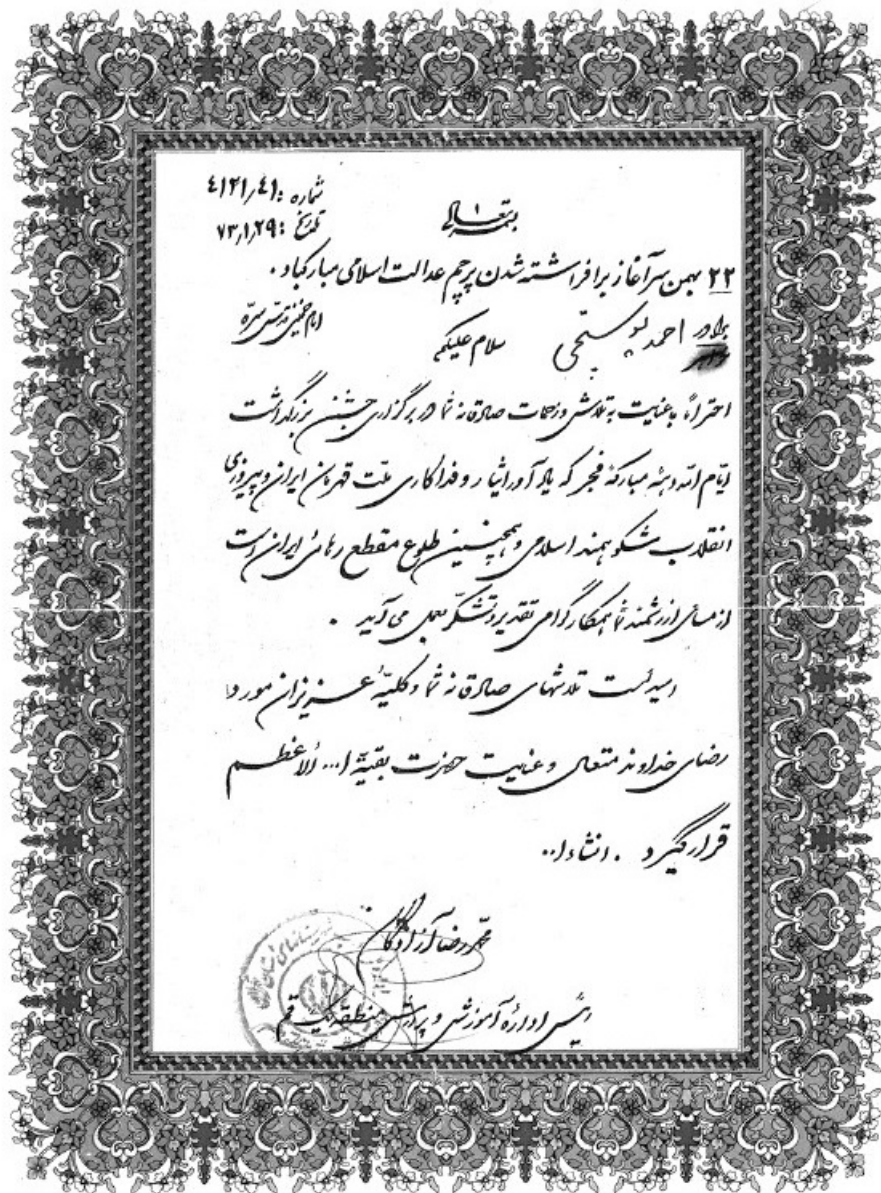 شماره: ۴۱۲۱/۴۱
تاریخ: ۷۳/۱/۲۹
بسمه تعالی
۲۲ بهمن سرآغاز برافراشته شدن پرچم عدالت اسلامی مبارکباد.
امام خمینی قدس سره
برادر احمد پوستچی سلام علیکم
احتراماً، با عنایت به تلاش و زحمات صادقانه شما در برگزاری جشن بزرگداشت
ایام الله دهه مبارکه فجر که یادآور ایثار و فداکاری ملت قهرمان ایران و پیروزی
انقلاب شکوهمند اسلامی و همچنین طلوع مقطع رهائی ایران است
از مساعی ارزشمند شما همکار گرامی تقدیر و تشکر بعمل می آید.
امید است تلاشهای صادقانه شما و کلیه عزیزان مورد
رضای خداوند متعال و عنایت حضرت بقیة ا... الأعظم
قرار گیرد. انشاءا..
محمدرضا آزادگان
رئیس اداره آموزش و پرورش منطقه یک قم